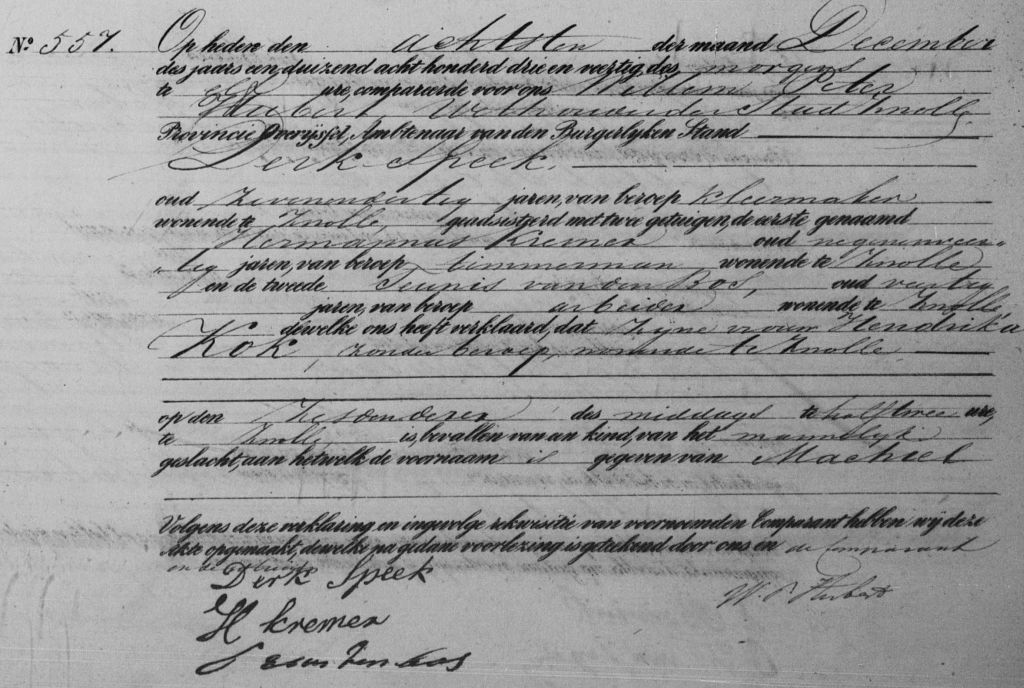 No. 557. Op heden den achtsten der maand December
des jaars een duizend acht honderd drie en veertig, des morgens
te elf ure, compareerde voor ons Willem Peter
Hubert Wethouder der Stad Zwolle
Provincie Overijssel, Ambtenaar van den Burgerlyken Stand
Derk Speek,
oud Zevenendertig jaren, van beroep kleermaker
wonende te Zwolle, geadsisteerd met twee getuigen, de eerste genaamd
Hermannus Kremer oud negenenveer-
tig jaren, van beroep timmerman wonende te Zwolle
en de tweede Teunis van den Bos, oud veertig
jaren, van beroep arbeider wonende te Zwolle
dewelke ons heeft verklaard, dat Zyne vrouw Hendrika
Kok, zonder beroep, wonende te Zwolle,
op den Zesden dezer des middags te half twee ure,
te Zwolle is bevallen van een kind, van het mannelyk
geslacht, aan hetwelk de voornaam is gegeven van Machiel
Volgens deze verklaring en ingevolge rekwisitie van voornoemden Comparant hebben wij deze
Akte opgemaakt, dewelke na gedane voorlezing is geteekend door ons en de Comparant
en de getuigen
Derk Speek
W. P. Hubert
H kremer